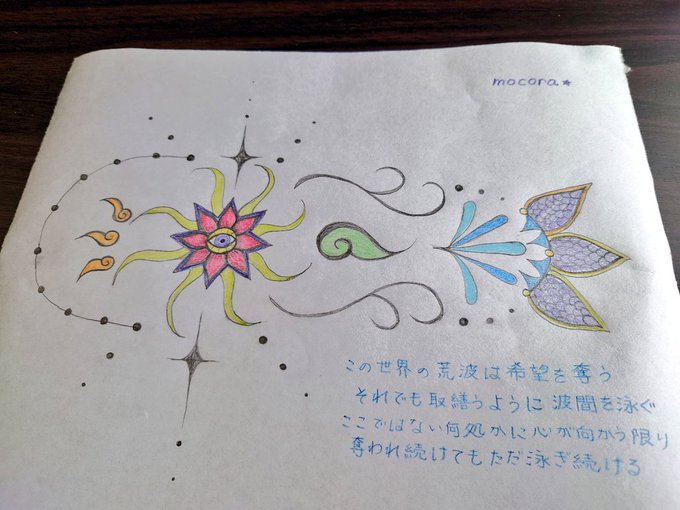 mocona★
この世界の荒波は希望を奪う
それでも取繕うように波間を泳ぐ
ここではない何処かに心が向かう限り
奪われ続けてもただ泳ぎ続ける